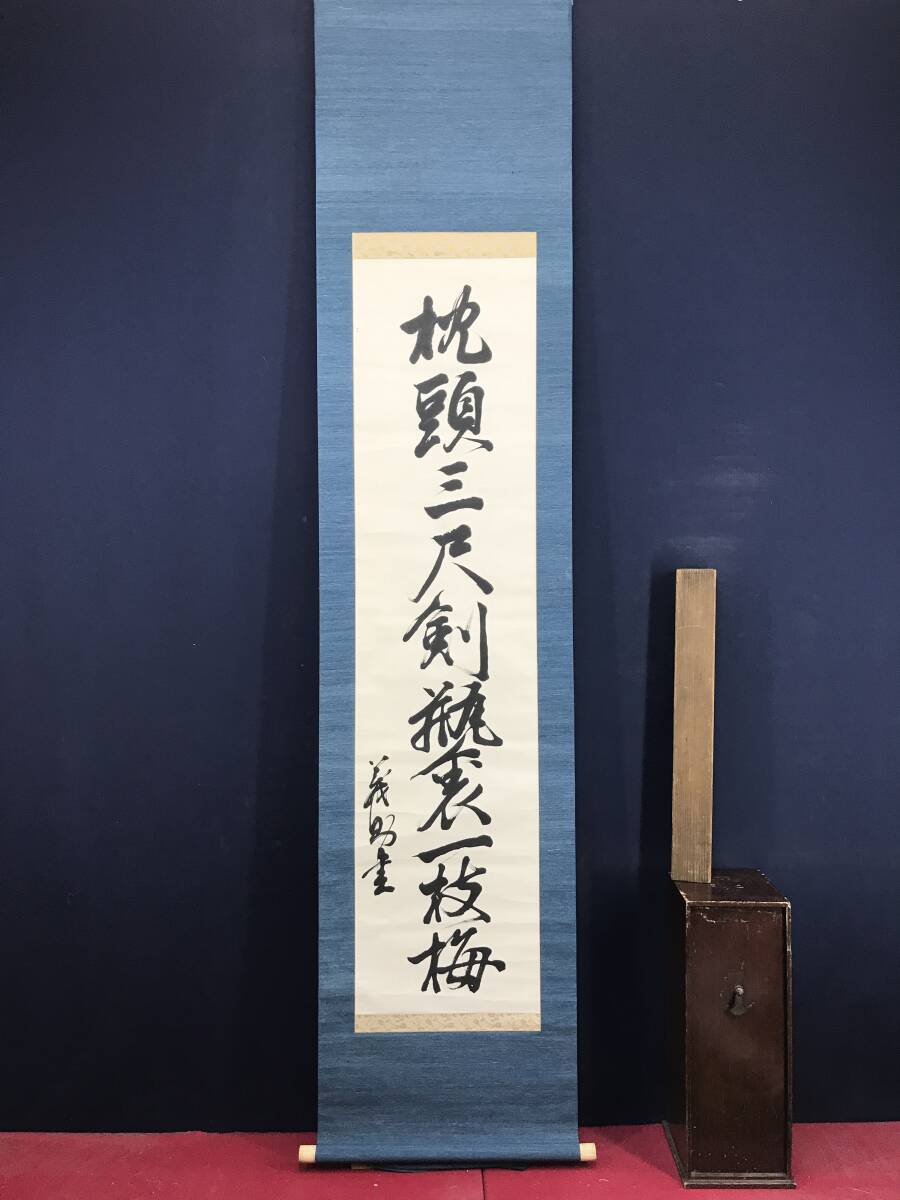 枕頭三尺剣瓶裏一枝梅
義助書